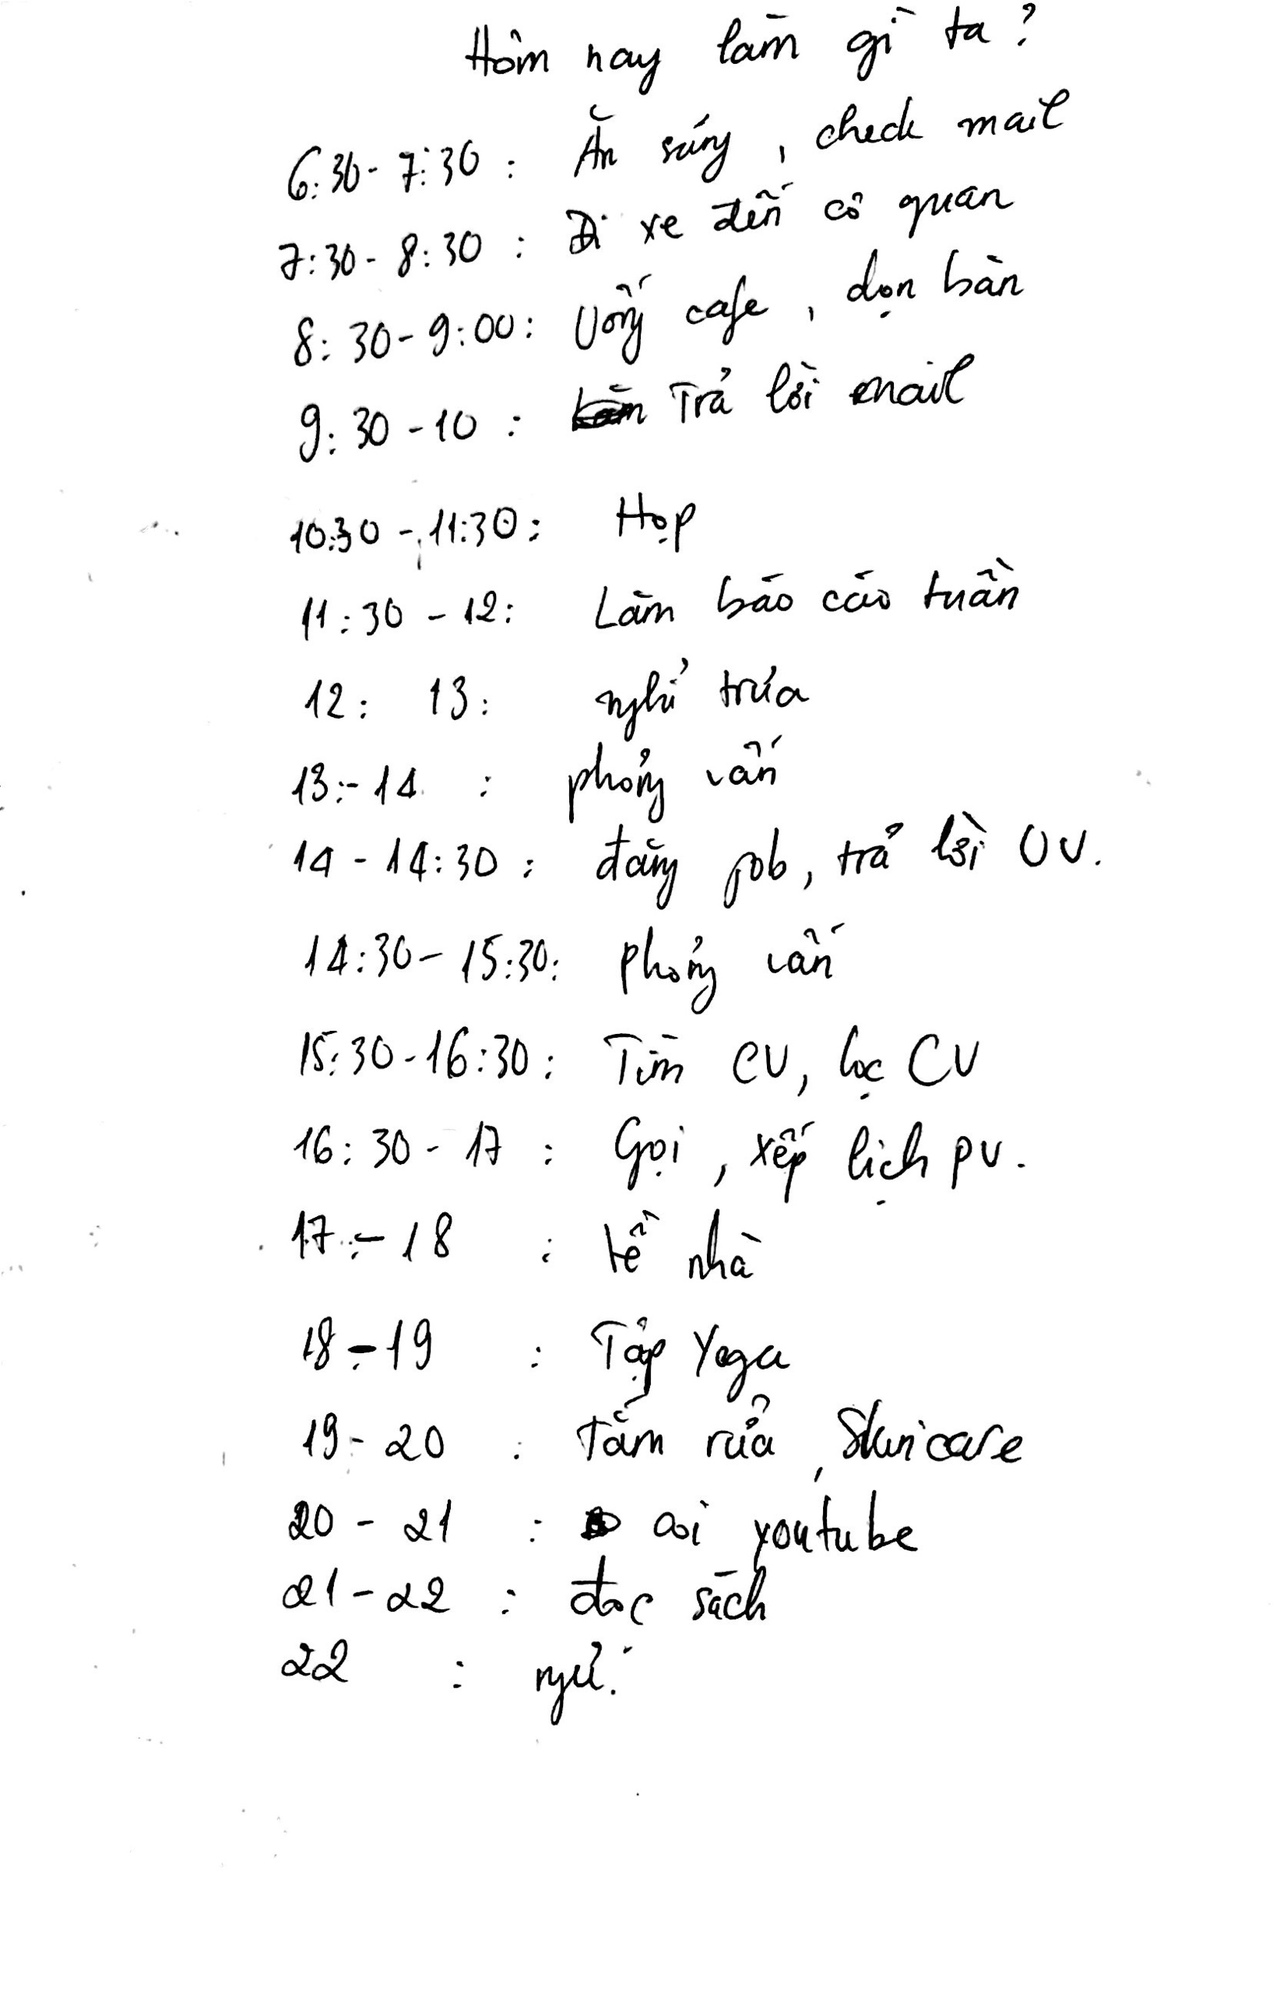 Hôm nay làm gì ta?
6:30 - 7:30 : Ăn sáng, check mail
7:30 - 8:30 : Đi xe đến cơ quan
8:30 - 9:00 : Uống cafe, dọn bàn
9:30 - 10 : Trả lời email
10:30 - 11:30 : Họp
11:30 - 12 : Làm báo cáo tuần
12 : 13 : nghỉ trưa
13 :- 14 : phỏng vấn
14 - 14:30 : đăng job, trả lời UV.
14:30 - 15:30 : phỏng vấn
15:30 - 16:30 : Tìm CV, lọc CV
16:30 - 17 : Gọi, xếp lịch PV.
17 :- 18 : về nhà
18 - 19 : Tập Yoga
19 - 20 : Tắm rửa, Skincare
20 - 21 : coi youtube
21 - 22 : đọc sách
22 : ngủ.